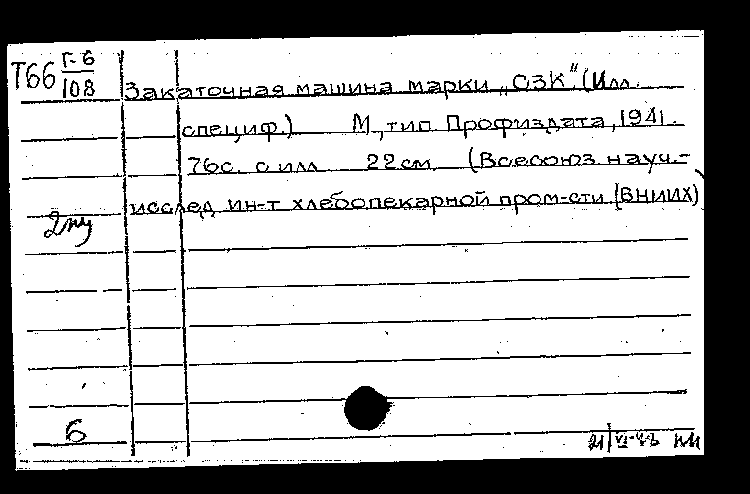 Т66 Г-6
108
Закаточная машина марки „СЗК" (Илл.
специф.) М., тип. Профиздата, 1941.
76с. с илл 22см. (Всесоюз. науч.-
исслед ин-т хлебопекарной пром-сти (ВНИИХ)
6
21/VI-